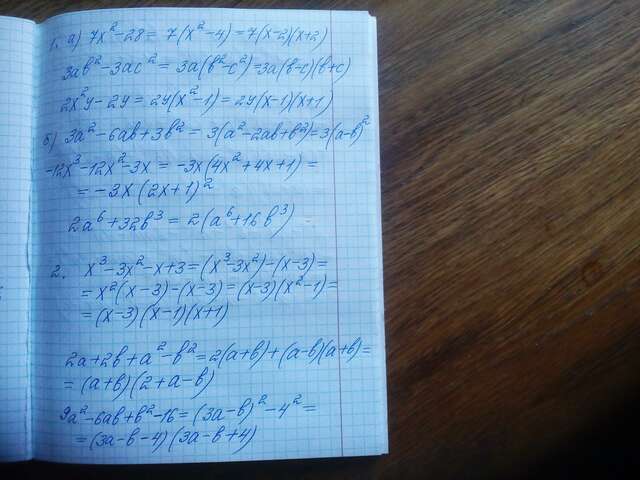 1. а) 7x² - 28 = 7(x² - 4) = 7(x-2)(x+2)
3ab² - 3ac² = 3a(b² - c²) = 3a(b-c)(b+c)
2x²y - 2y = 2y(x² - 1) = 2y(x-1)(x+1)
б) 3a² - 6ab + 3b² = 3(a² - 2ab + b²) = 3(a-b)²
-12x³ - 12x² - 3x = -3x(4x² + 4x + 1) =
= -3x(2x+1)²
2a⁶ + 32b³ = 2(a⁶ + 16b³)
2. x³ - 3x² - x + 3 = (x³ - 3x²) - (x-3) =
= x²(x-3) - (x-3) = (x-3)(x² - 1) =
= (x-3)(x-1)(x+1)
2a + 2b + a² - b² = 2(a+b) + (a-b)(a+b) =
= (a+b)(2+a-b)
9a² - 6ab + b² - 16 = (3a-b)² - 4² =
= (3a-b-4)(3a-b+4)